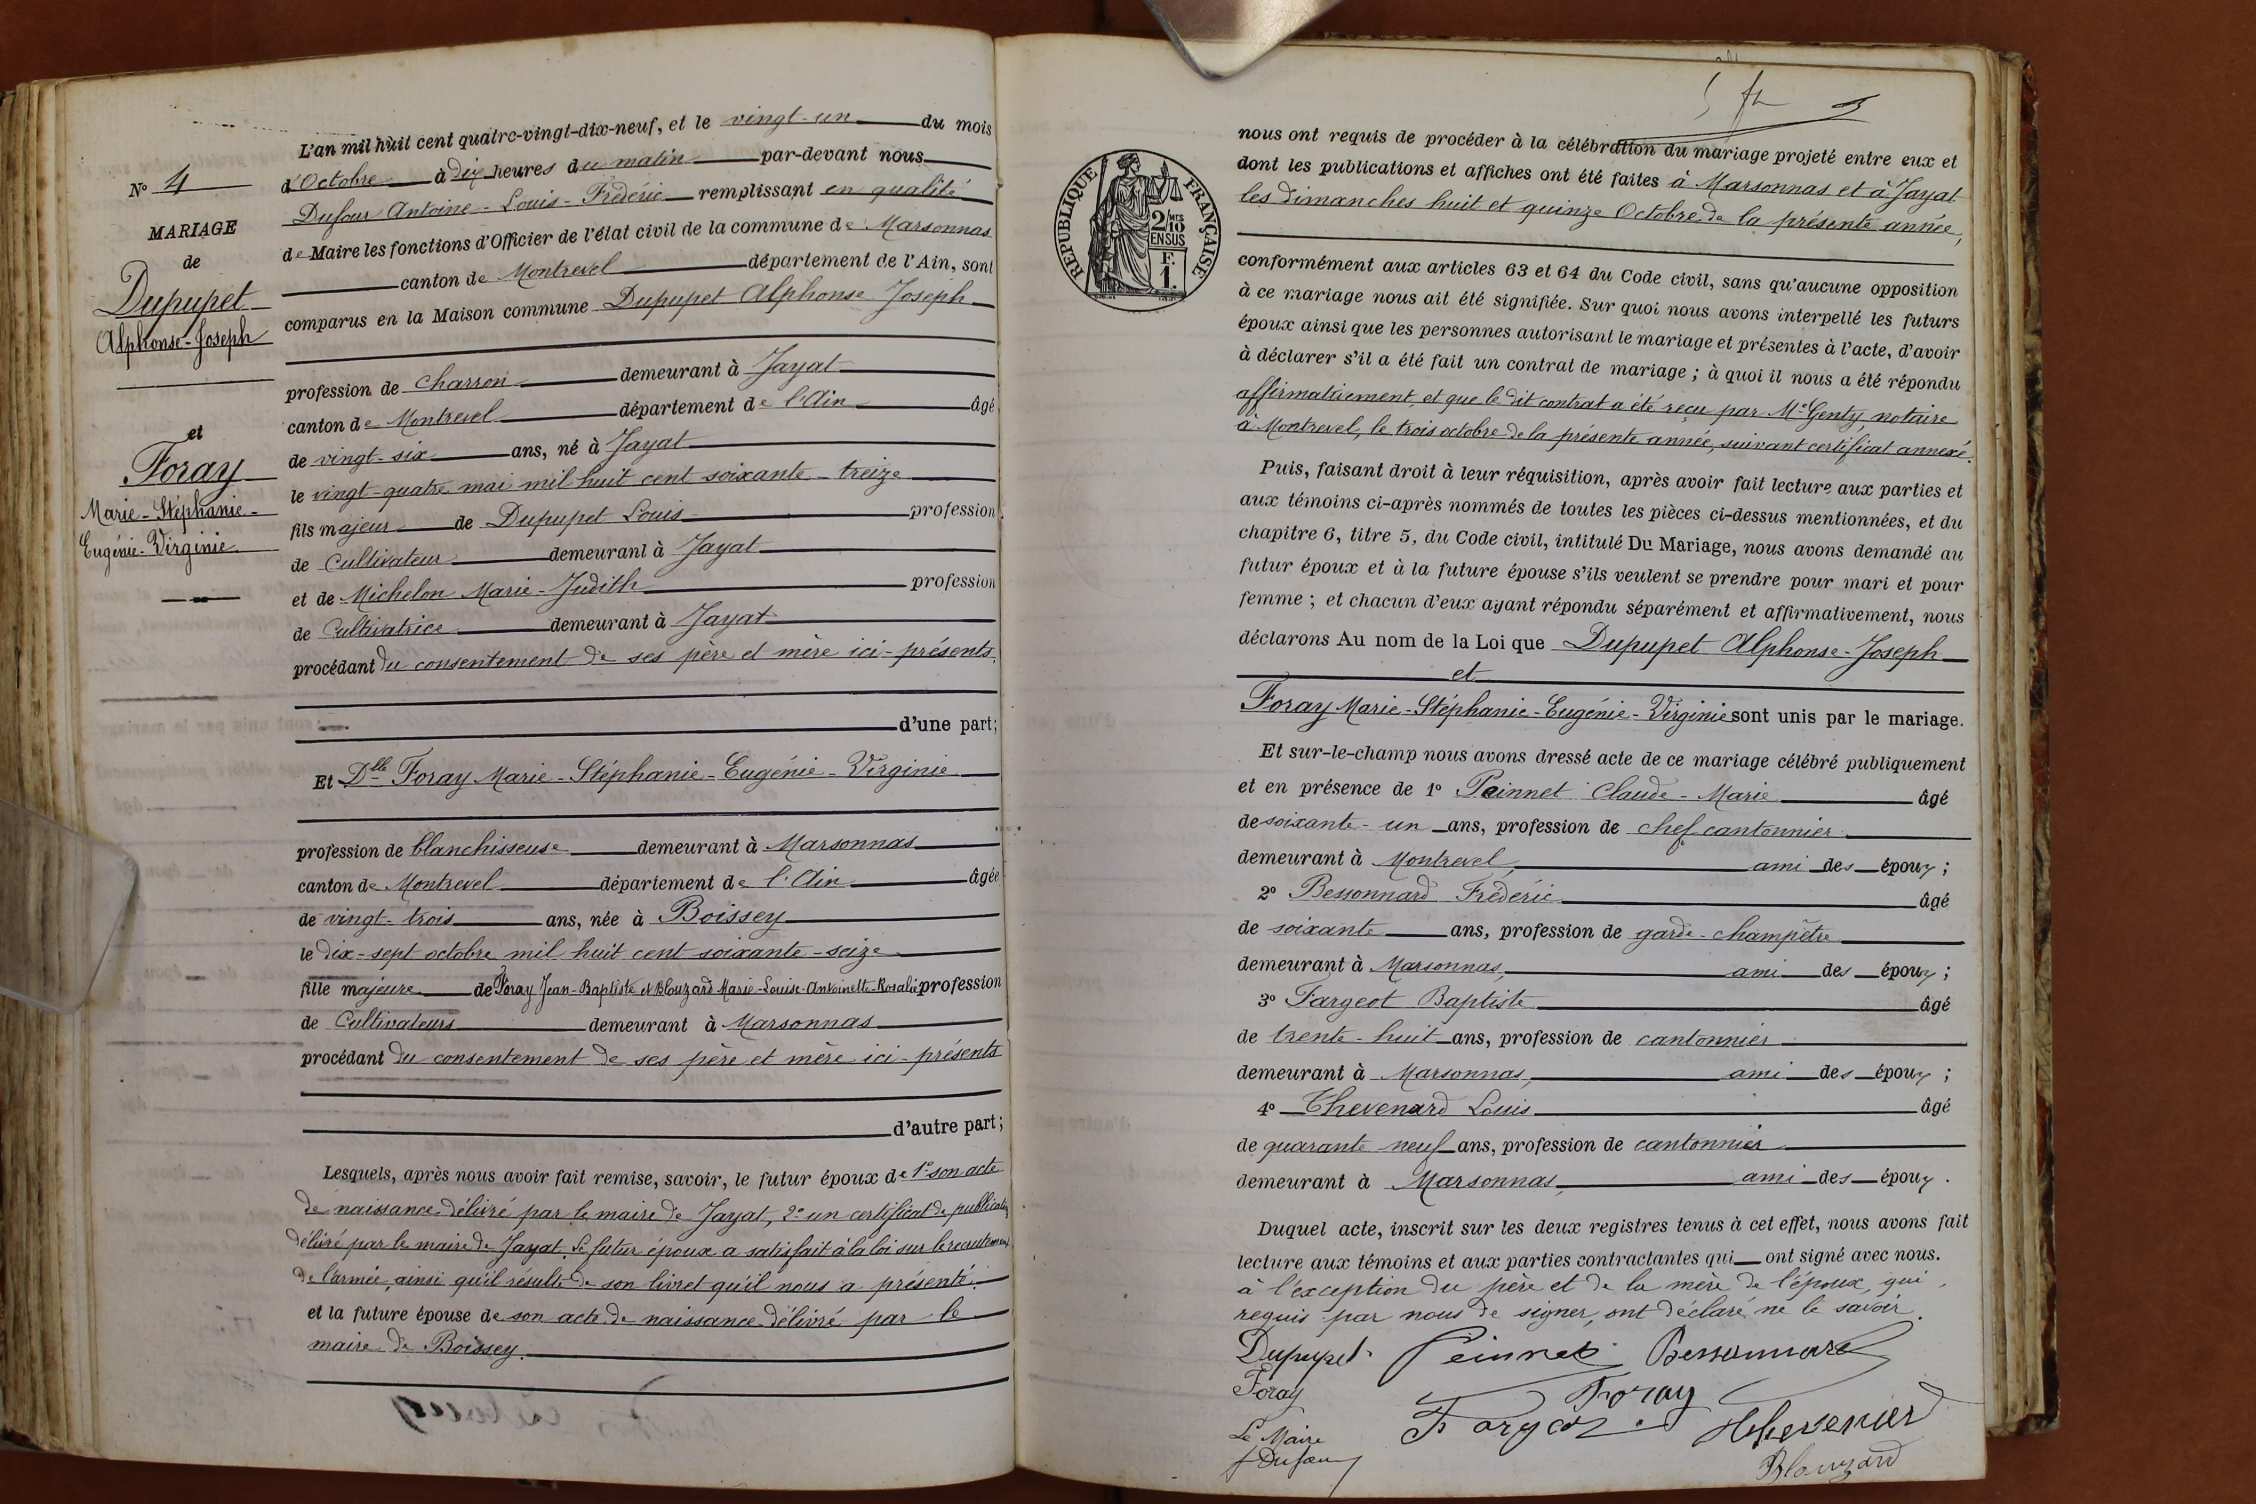 N° 4
MARIAGE
de
Dupupet
Alphonse-Joseph
et
Foray
Marie-Stéphanie-
Eugénie-Virginie
L'an mil huit cent quatre-vingt-dix-neuf, et le vingt-un du mois
d'Octobre à dix heures du matin par-devant nous
Dufour Antoine-Louis-Frédéric remplissant en qualité
de Maire les fonctions d'Officier de l'état civil de la commune de Marsonnas
canton de Montrevel département de l'Ain, sont
comparus en la Maison commune Dupupet Alphonse Joseph
profession de charron demeurant à Jayat
canton de Montrevel département de l'Ain âgé
de vingt-six ans, né à Jayat
le vingt-quatre mai mil huit cent soixante-treize
fils majeur de Dupupet Louis profession
de Cultivateur demeurant à Jayat
et de Michelon Marie-Judith profession
de Cultivatrice demeurant à Jayat
procédant du consentement de ses père et mère ici-présents.
d'une part;
Et Dlle Foray Marie-Stéphanie-Eugénie-Virginie
profession de blanchisseuse demeurant à Marsonnas
canton de Montrevel département de l'Ain âgée
de vingt-trois ans, née à Boissey
le dix-sept octobre mil huit cent soixante-seize
fille majeure de Foray Jean-Baptiste et Blouzard Marie-Louise-Antoinette-Rosalie profession
de Cultivateurs demeurant à Marsonnas
procédant du consentement de ses père et mère ici-présents
d'autre part;
Lesquels, après nous avoir fait remise, savoir, le futur époux de 1° son acte
de naissance délivré par le maire de Jayat, 2° un certificat de publication
délivré par le maire de Jayat. Le futur époux a satisfait à la loi sur le recrutement
de l'armée, ainsi qu'il résulte de son livret qu'il nous a présenté.
et la future épouse de son acte de naissance délivré par le
maire de Boissey.
RÉPUBLIQUE FRANÇAISE
2/10 MES
EN SUS
F.
1.
nous ont requis de procéder à la célébration du mariage projeté entre eux et
dont les publications et affiches ont été faites à Marsonnas et à Jayat
les dimanches huit et quinze Octobre de la présente année,
conformément aux articles 63 et 64 du Code civil, sans qu'aucune opposition
à ce mariage nous ait été signifiée. Sur quoi nous avons interpellé les futurs
époux ainsi que les personnes autorisant le mariage et présentes à l'acte, d'avoir
à déclarer s'il a été fait un contrat de mariage ; à quoi il nous a été répondu
affirmativement, et que le dit contrat a été reçu par Me Genty, notaire
à Montrevel, le trois octobre de la présente année, suivant certificat annexé.
Puis, faisant droit à leur réquisition, après avoir fait lecture aux parties et
aux témoins ci-après nommés de toutes les pièces ci-dessus mentionnées, et du
chapitre 6, titre 5, du Code civil, intitulé Du Mariage, nous avons demandé au
futur époux et à la future épouse s'ils veulent se prendre pour mari et pour
femme ; et chacun d'eux ayant répondu séparément et affirmativement, nous
déclarons Au nom de la Loi que Dupupet Alphonse-Joseph
et
Foray Marie-Stéphanie-Eugénie-Virginie sont unis par le mariage.
Et sur-le-champ nous avons dressé acte de ce mariage célébré publiquement
et en présence de 1° Peinnet Claude-Marie âgé
de soixante-un ans, profession de chef cantonnier
demeurant à Montrevel, ami des époux ;
2° Bessonnard Frédéric âgé
de soixante ans, profession de garde-champêtre
demeurant à Marsonnas, ami des époux ;
3° Fargeot Baptiste âgé
de trente-huit ans, profession de cantonnier
demeurant à Marsonnas, ami des époux ;
4° Thevenard Louis âgé
de quarante neuf ans, profession de cantonnier
demeurant à Marsonnas, ami des époux.
Duquel acte, inscrit sur les deux registres tenus à cet effet, nous avons fait
lecture aux témoins et aux parties contractantes qui ont signé avec nous.
à l'exception du père et de la mère de l'époux, qui,
requis par nous de signer, ont déclaré ne le savoir.
Dupupet Peinnet Bessonnard
Foray Foray
Fargeot Thevenard
Le Maire
Dufour
Blouzard